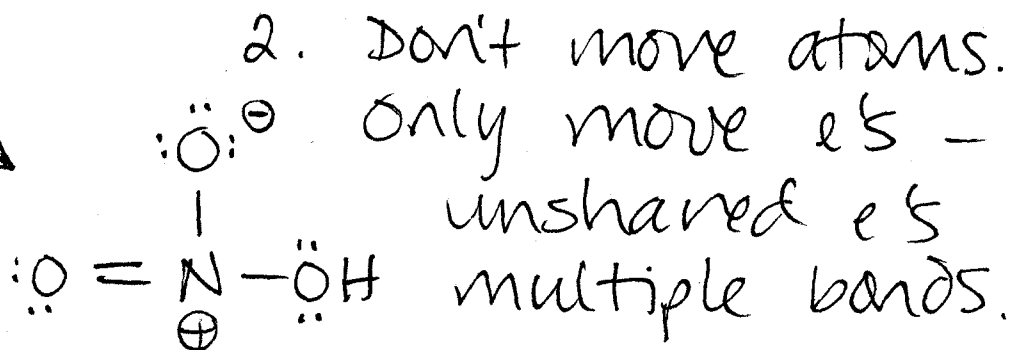 2. Don't move atoms.
Only move e's –
unshared e's
multiple bonds.
:Ö:⊖
|
:O=N–ÖH
⊕